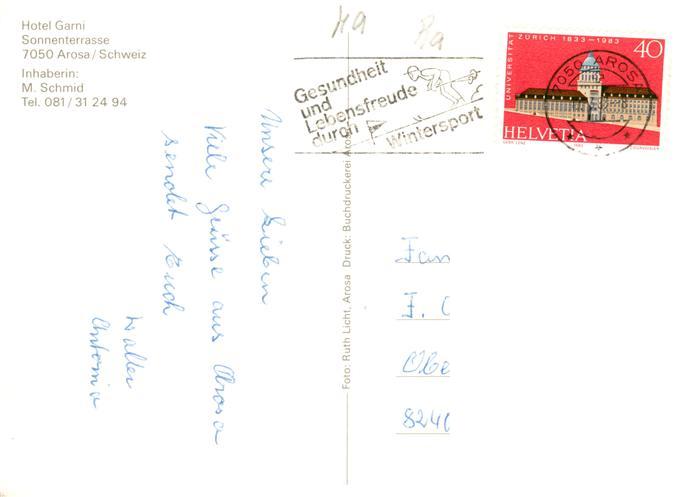 Hotel Garni
Sonnenterrasse
7050 Arosa/Schweiz
Inhaberin:
M. Schmid
Tel. 081/31 24 94
Gesundheit
und
Lebensfreude
durch
Wintersport
UNIVERSITÄT ZÜRICH 1833-1983
40
HELVETIA
7050 AROSA
Unsere Lieben
Viele Grüsse aus Arosa
sendet Euch
Walter
Antonia
Foto: Ruth Licht, Arosa Druck: Buchdruckerei Aro
Fam
F. C
Obe
8240